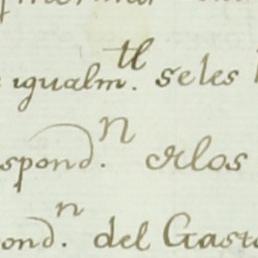 igualm.te seles
spond.n delos
ond.n del Gasto